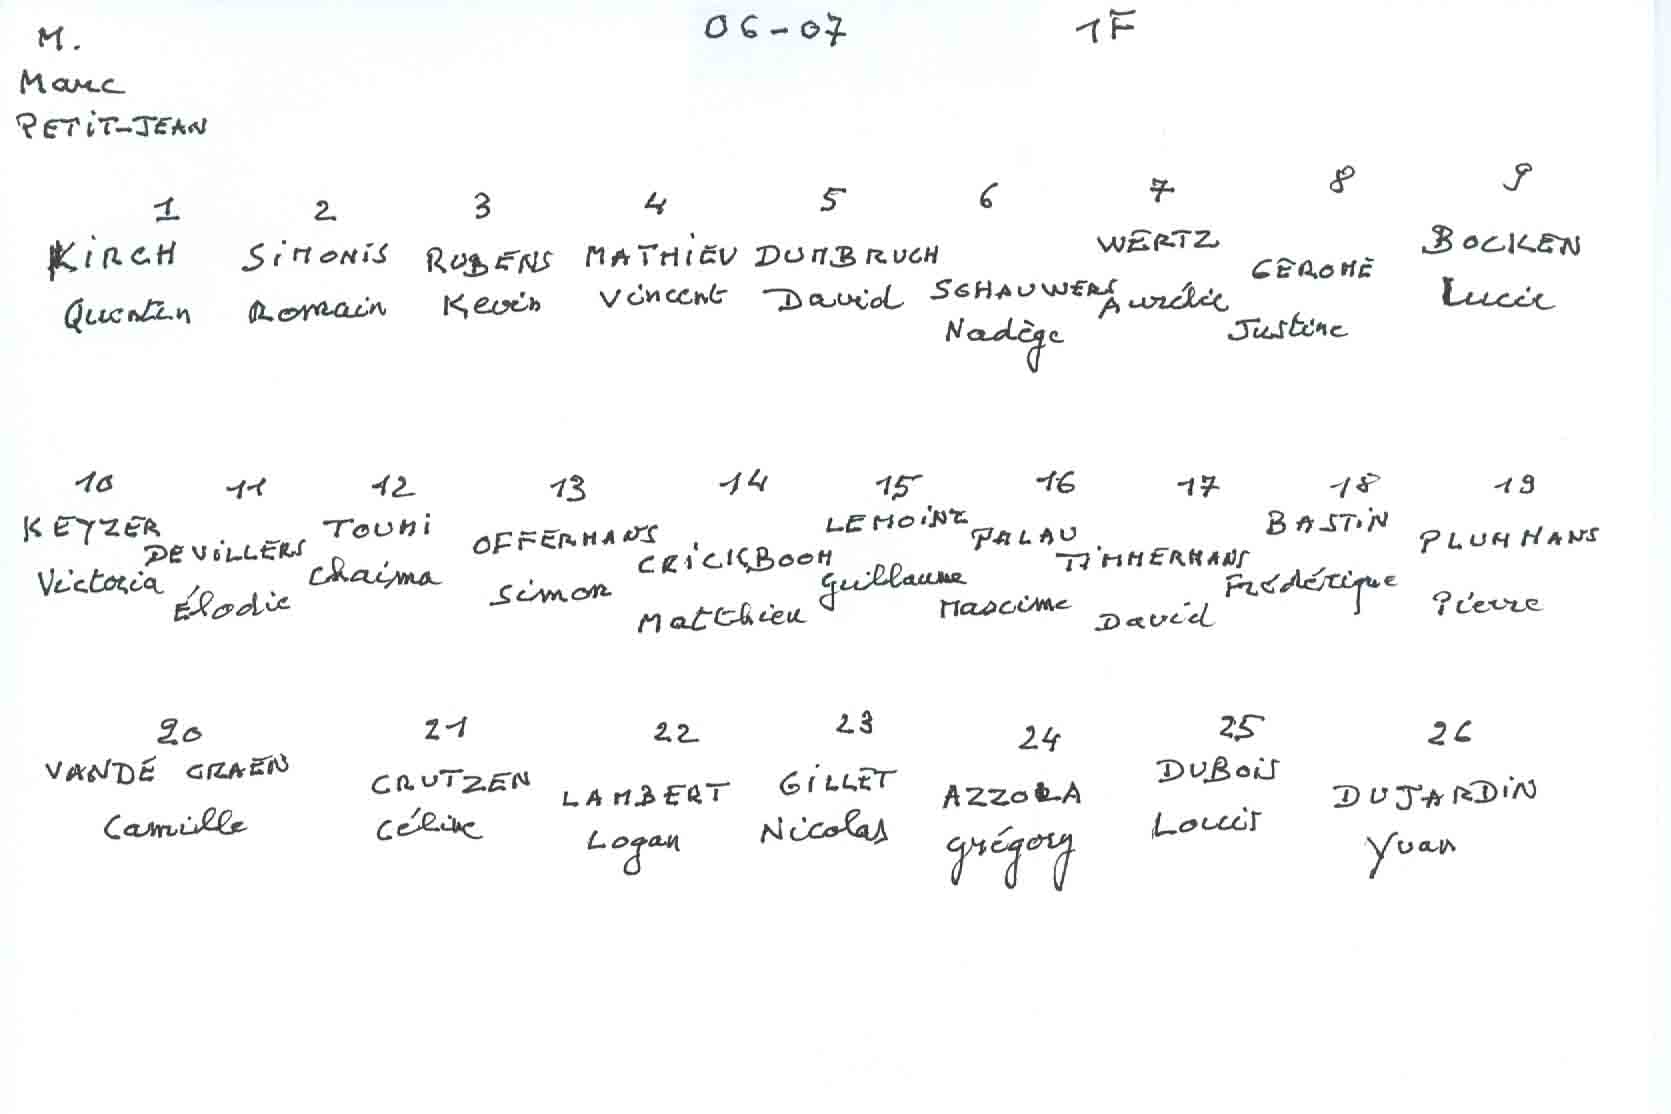 M. 06-07 1F
Marc
PETIT-JEAN
1 2 3 4 5 6 7 8 9
KIRCH SIMONIS RUBENS MATHIEU DUMBRUCH SCHAUWERS WERTZ GEROME BOCKEN
Quentin Romain Kevin Vincent David Nadège Aurélie Justine Lucie
10 11 12 13 14 15 16 17 18 19
KEYZER DEVILLERS TOUMI OFFERMANS CRICKBOOM LEMOINE PALAU TIMMERMANS BASTIN PLUMMANS
Victoria Élodie Chaima Simon Matthieu Guillaume Maxime David Frédérique Pierre
20 21 22 23 24 25 26
VANDE GRAEN CRUTZEN LAMBERT GILLET AZZOLA DUBOIS DUJARDIN
Camille Céline Logan Nicolas Grégory Louis Yvan